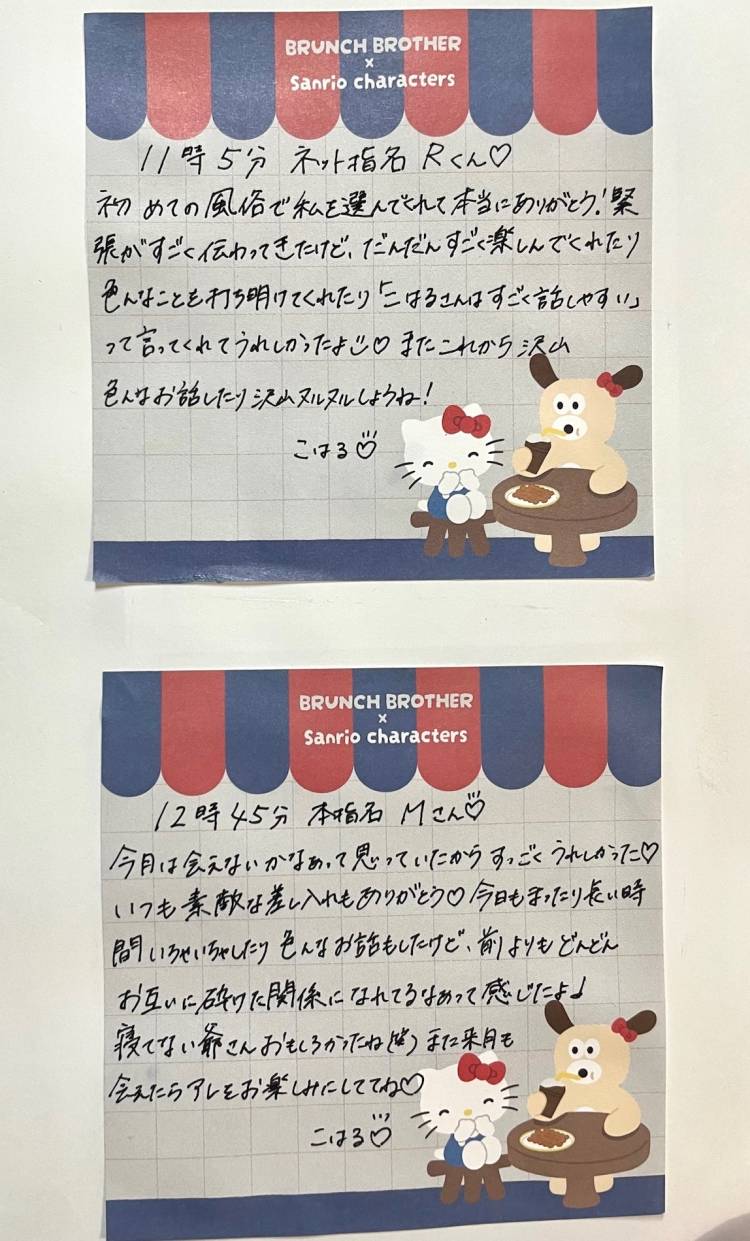 BRUNCH BROTHER
×
Sanrio characters
11時5分 ネット指名 Rくん♡
初めての風俗で私を選んでくれて本当にありがとう!緊
張がすごく伝わってきたけど、だんだんすごく楽しんでくれたり
色んなことも打ち明けてくれたり「こはるさんはすごく話しやすい」
って言ってくれてうれしかったよ♡ またこれから沢山
色んなお話したり沢山ヌルヌルしようね!
こはる♡
BRUNCH BROTHER
×
Sanrio characters
12時45分 本指名 Mさん♡
今月は会えないかなあって思っていたからすっごくうれしかった♡
いつも素敵な差し入れもありがとう♡ 今日もまったり長い時
間いちゃいちゃしたり色んなお話もしたけど、前よりもどんどん
お互いに砕けた関係になれてるなあって感じたよ♩
寝てない爺さんおもしろかったね(笑) また来月も
会えたらアレをお楽しみにしててね♡
こはる♡